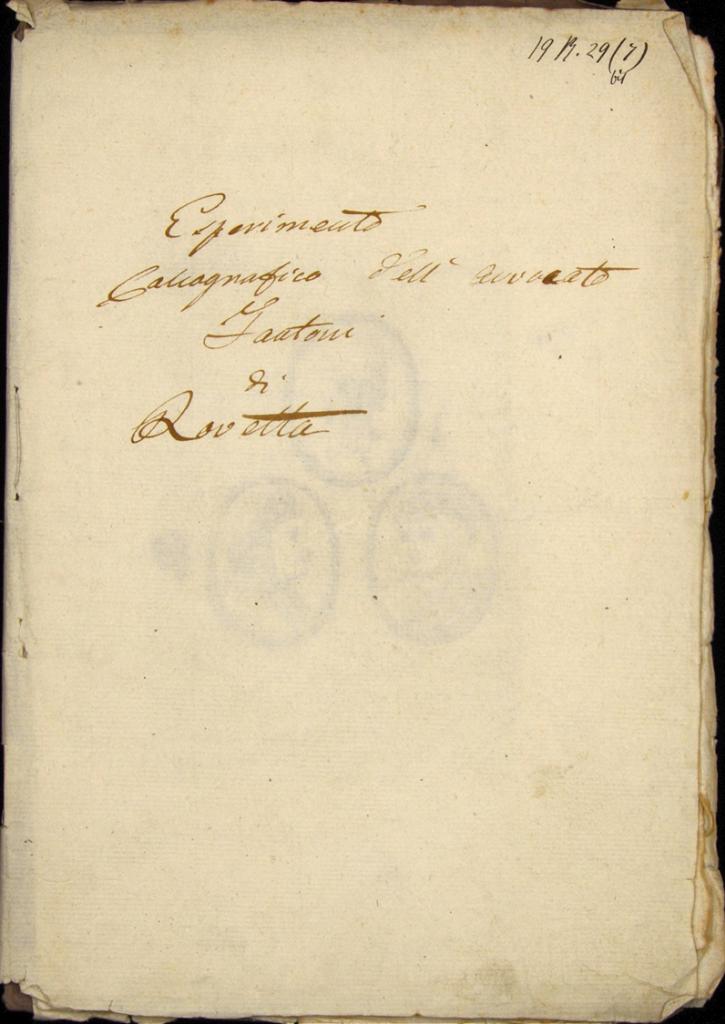 19 R. 29 (7)
bis
Esperimento
Calcografico dell' avvocato
Fantoni
di
Rovetta